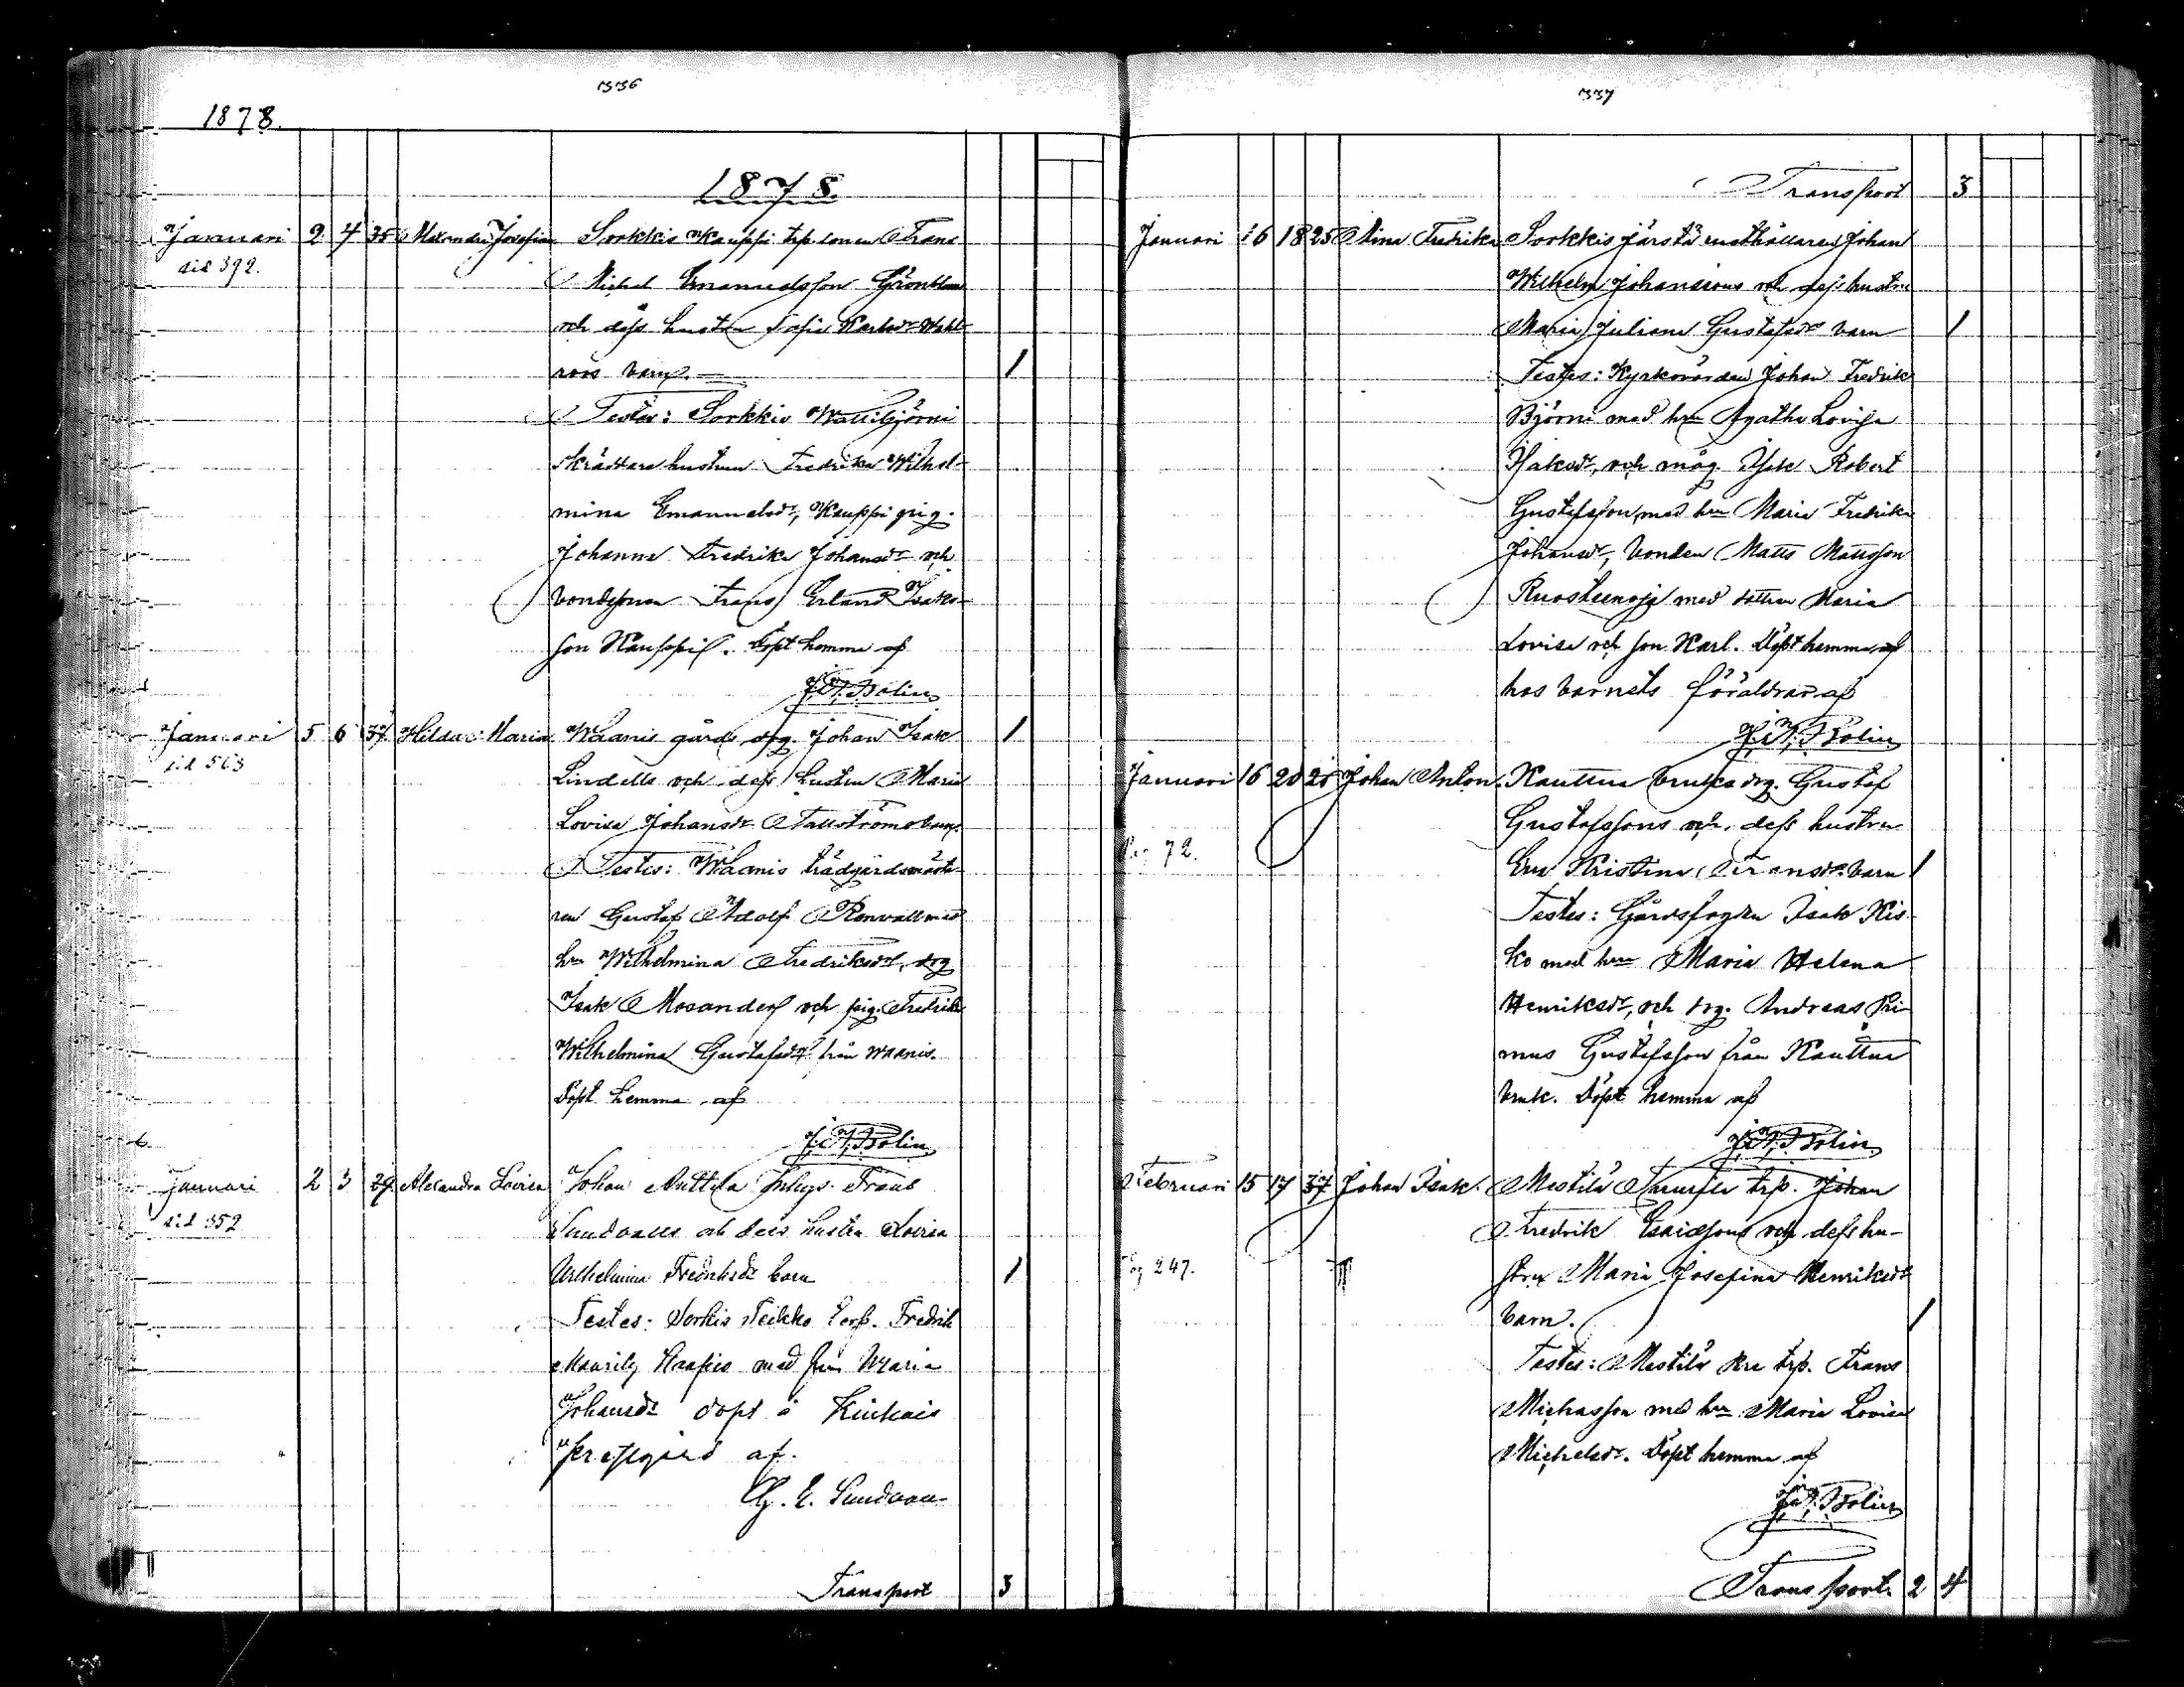 336
1878.
1878.
Januari 2 4 35 Alexandra Josefina Sorkkis Kauppi trp. sonen Frans
sid 392. Michel Emanuelsson Grönblom
och dess hustru Sofia Karlsdr Wahl-
roos barn. 1
Testes: Sorkkis Wattibjörni
skräddare hustrun Fredrika Wilhel-
mina Emanuelsdr, Kauppi pig.
Johanna Fredrika Johansdr och
bondesonen Frans Erland Isaks-
son Kauppi. Döpt hemma af
J. A. Bolin
Januari 5 6 37 Hilda Maria Waanis gårds drg. Johan Isak 1
sid 563 Lindells och dess hustru Maria
Lovisa Johansdr Tallströms barn.
Testes: Waanis trädgårdsmäste-
ren Gustaf Adolf Renvall med
hru Wilhelmina Fredriksdr, drg
Isak Mosander och pig. Fredrika
Wilhelmina Gustafsdr från Waanis.
Döpt hemma af
J. A. Bolin
Januari 2 3 29 Alexandra Lovisa Johan Anttila Inhys. Frans
sid 352 Sundvalls och dess hustru Lovisa
Wilhelmina Fredriksdr barn 1
Testes: Sorkis Teikko torp. Fredrik
Mauritz med hru Maria
Johansdr döpt å Kiukais
prestgård af.
G. E. Sundvall
Transport 3
337
Transport 3
Januari 16 18 25 Mina Fredrika Sorkkis Järstä rusthållaren Johan
Wilhelm Johanssons och dess hustru
Maria Juliana Gustafsdr barn 1
Testes: Kyrkovärden Johan Fredrik
Björni med hru Agatha Lovisa
Isaksdr, och måg Isak Robert
Gustafsson med hru Maria Fredrika
Johansdr, bonden Matts Mattsson
Ruosteenoja med dottren Maria
Lovisa och son Karl. Döpt hemma af
hos barnets föräldrar af
J. A. Bolin
Januari 16 20 25 Johan Anton. Kauttua bruks drg. Gustaf
Gustafssons och dess hustru
Pag 72. Eva Kristina Fransdr barn 1
Testes: Gårdsfogden Isak Kis-
ko med hru Maria Helena
Henriksdr, och drg. Andreas Pri-
mus Gustafsson från Kauttua
bruk. Döpt hemma af
J. A. Bolin
Februari 15 17 37 Johan Isak. Mestilä trp. Johan
Fredrik Esaiassons och dess hu-
Pag 247. stru Maria Josefina Henriksdr
barn. 1
Testes: Mestilä trp. Frans
Michelsson med hru Maria Lovisa
Michelsdr. Döpt hemma af
J. A. Bolin
Transport. 2 4